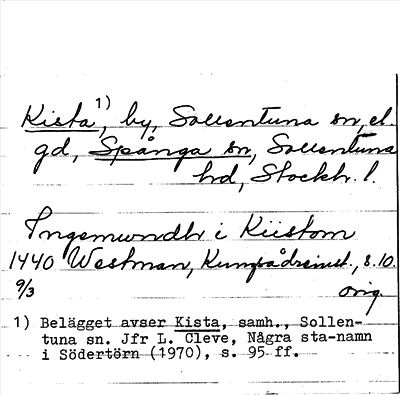 Kista 1), by, Sollentuna sn, el.
gd, Spånga sn, Sollentuna
hd, Stockh. l.
Ingemundh i Kiistom
1440 Westman, , s. 10.
9/3 orig.
1) Belägget avser Kista, samh., Sollen-
tuna sn. Jfr L. Cleve, Några sta-namn
i Södertörn (1970), s. 95 ff.